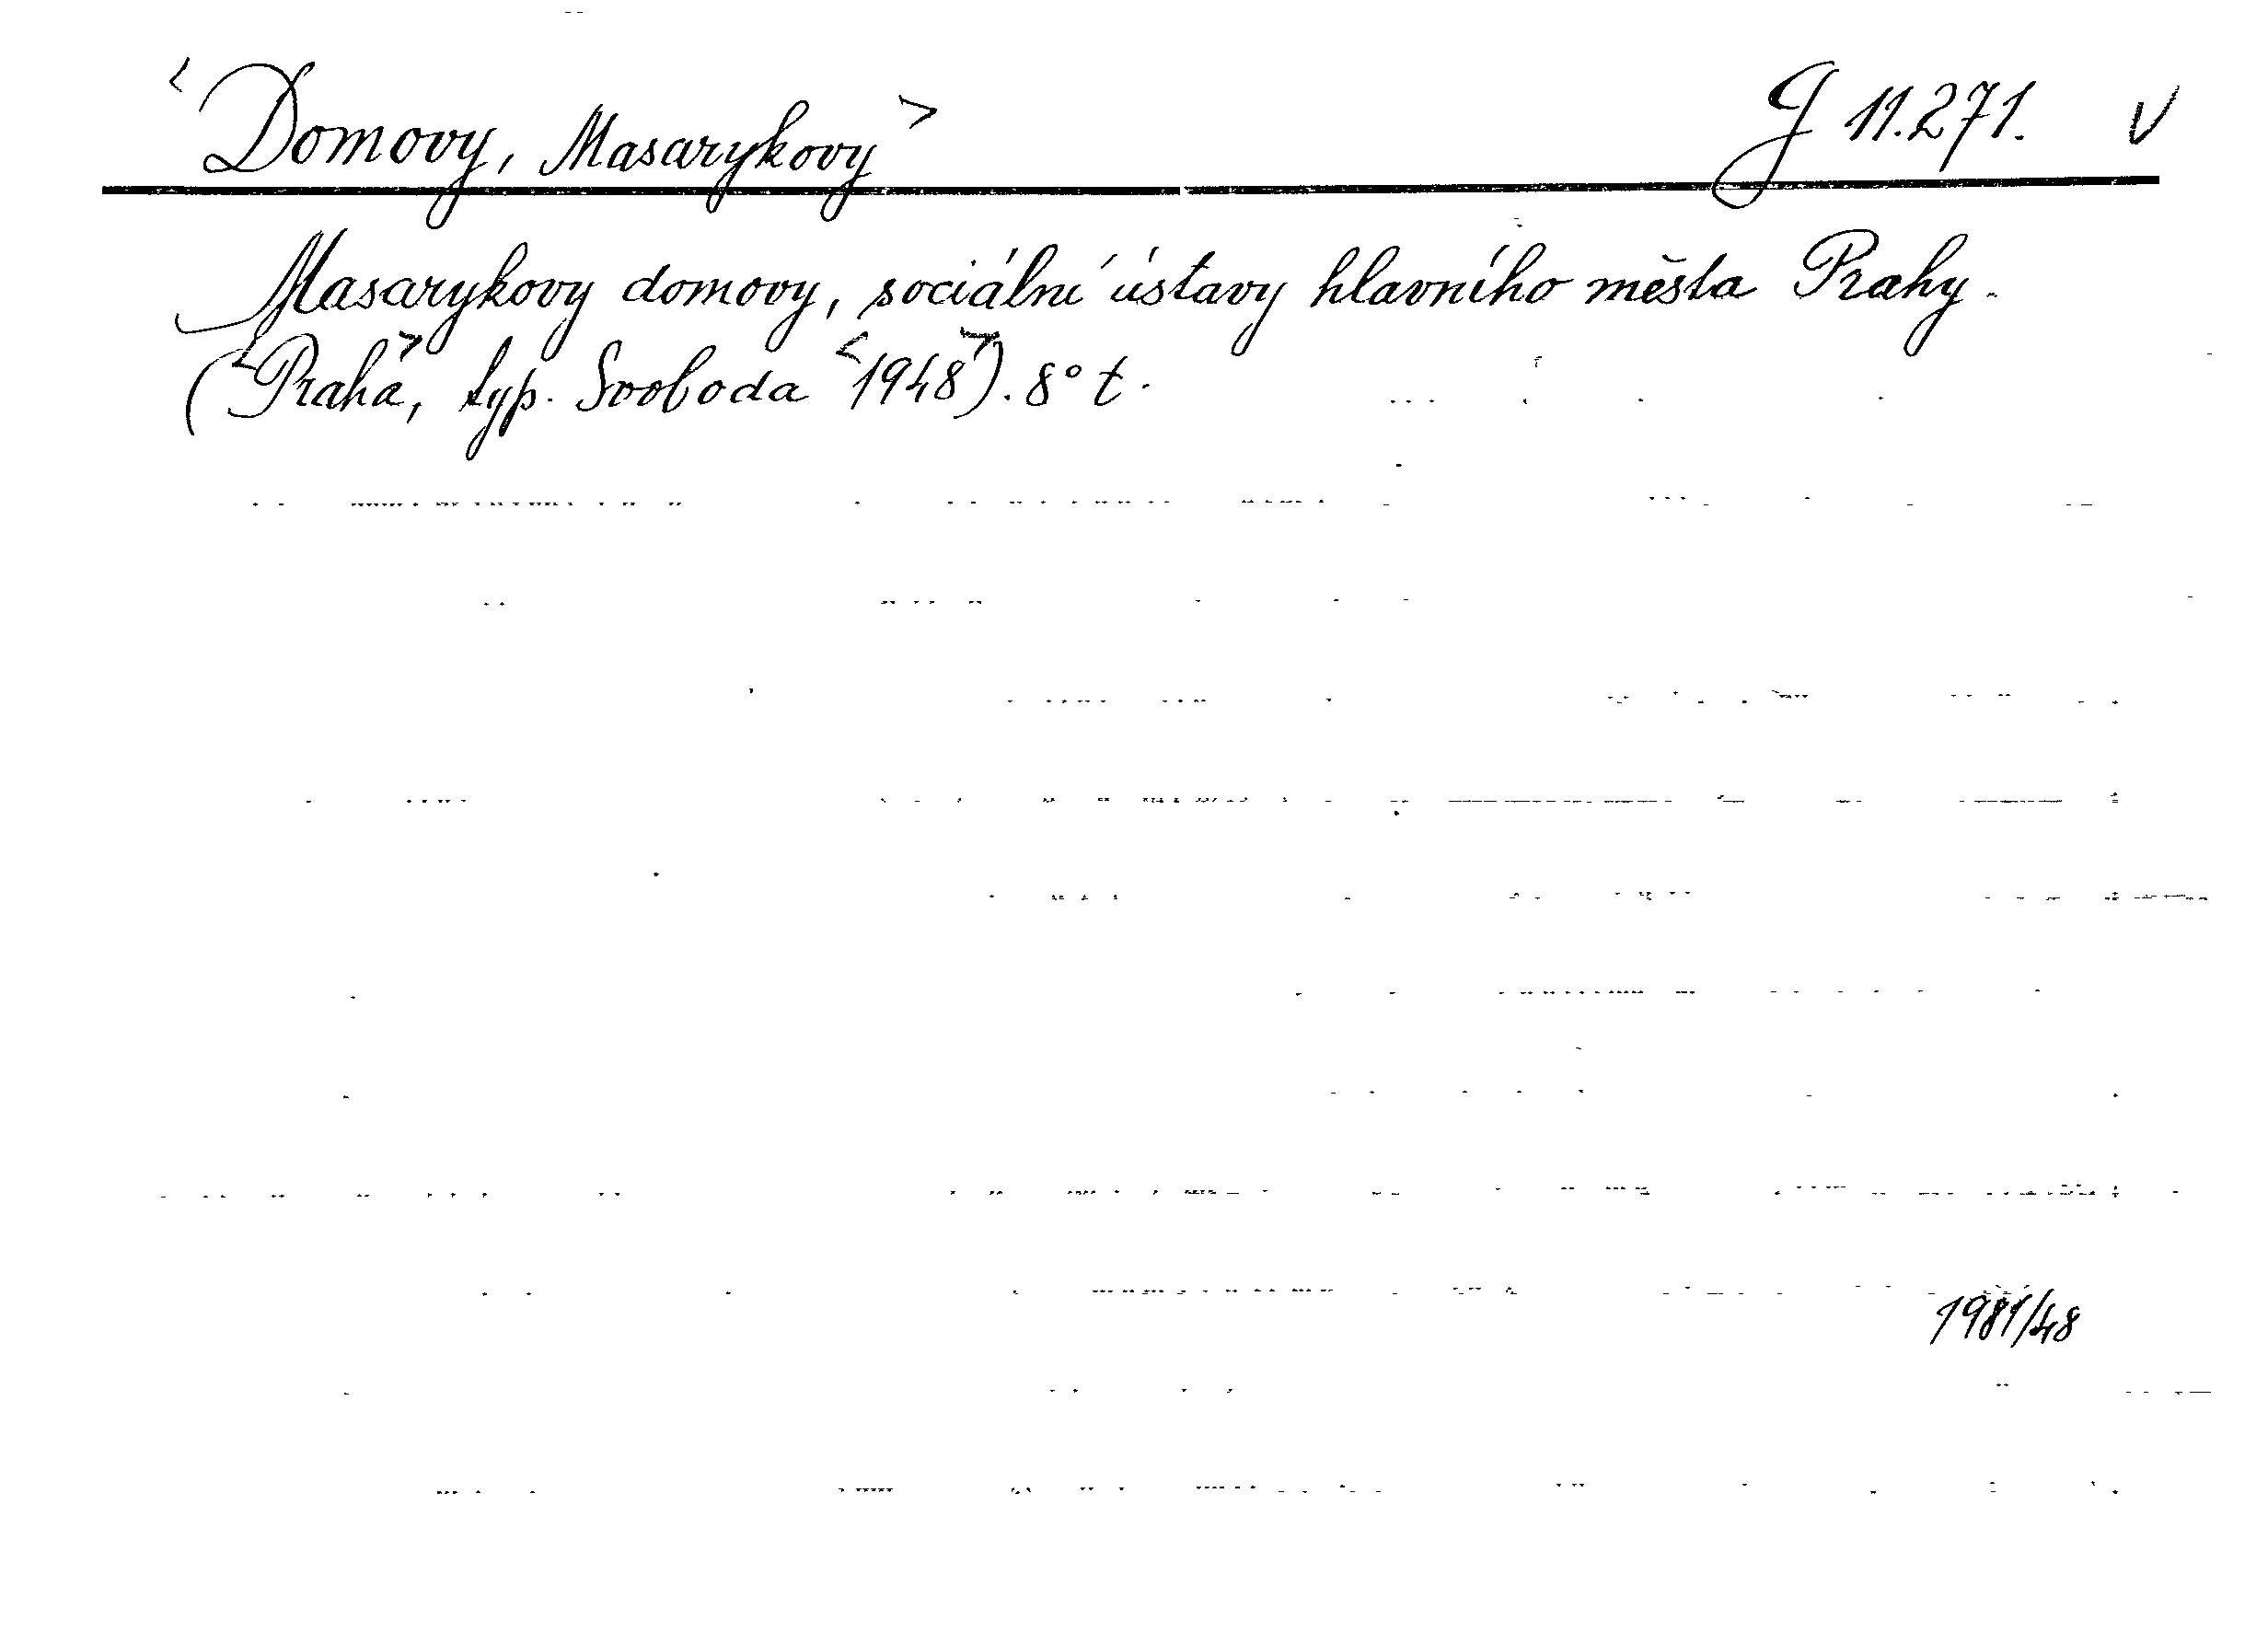 <Domovy, Masarykovy> G 11.271. V
Masarykovy domovy, sociální ústavy hlavního města Prahy.
(<Praha>, typ. Svoboda <1948>). 8° t.
1981/48